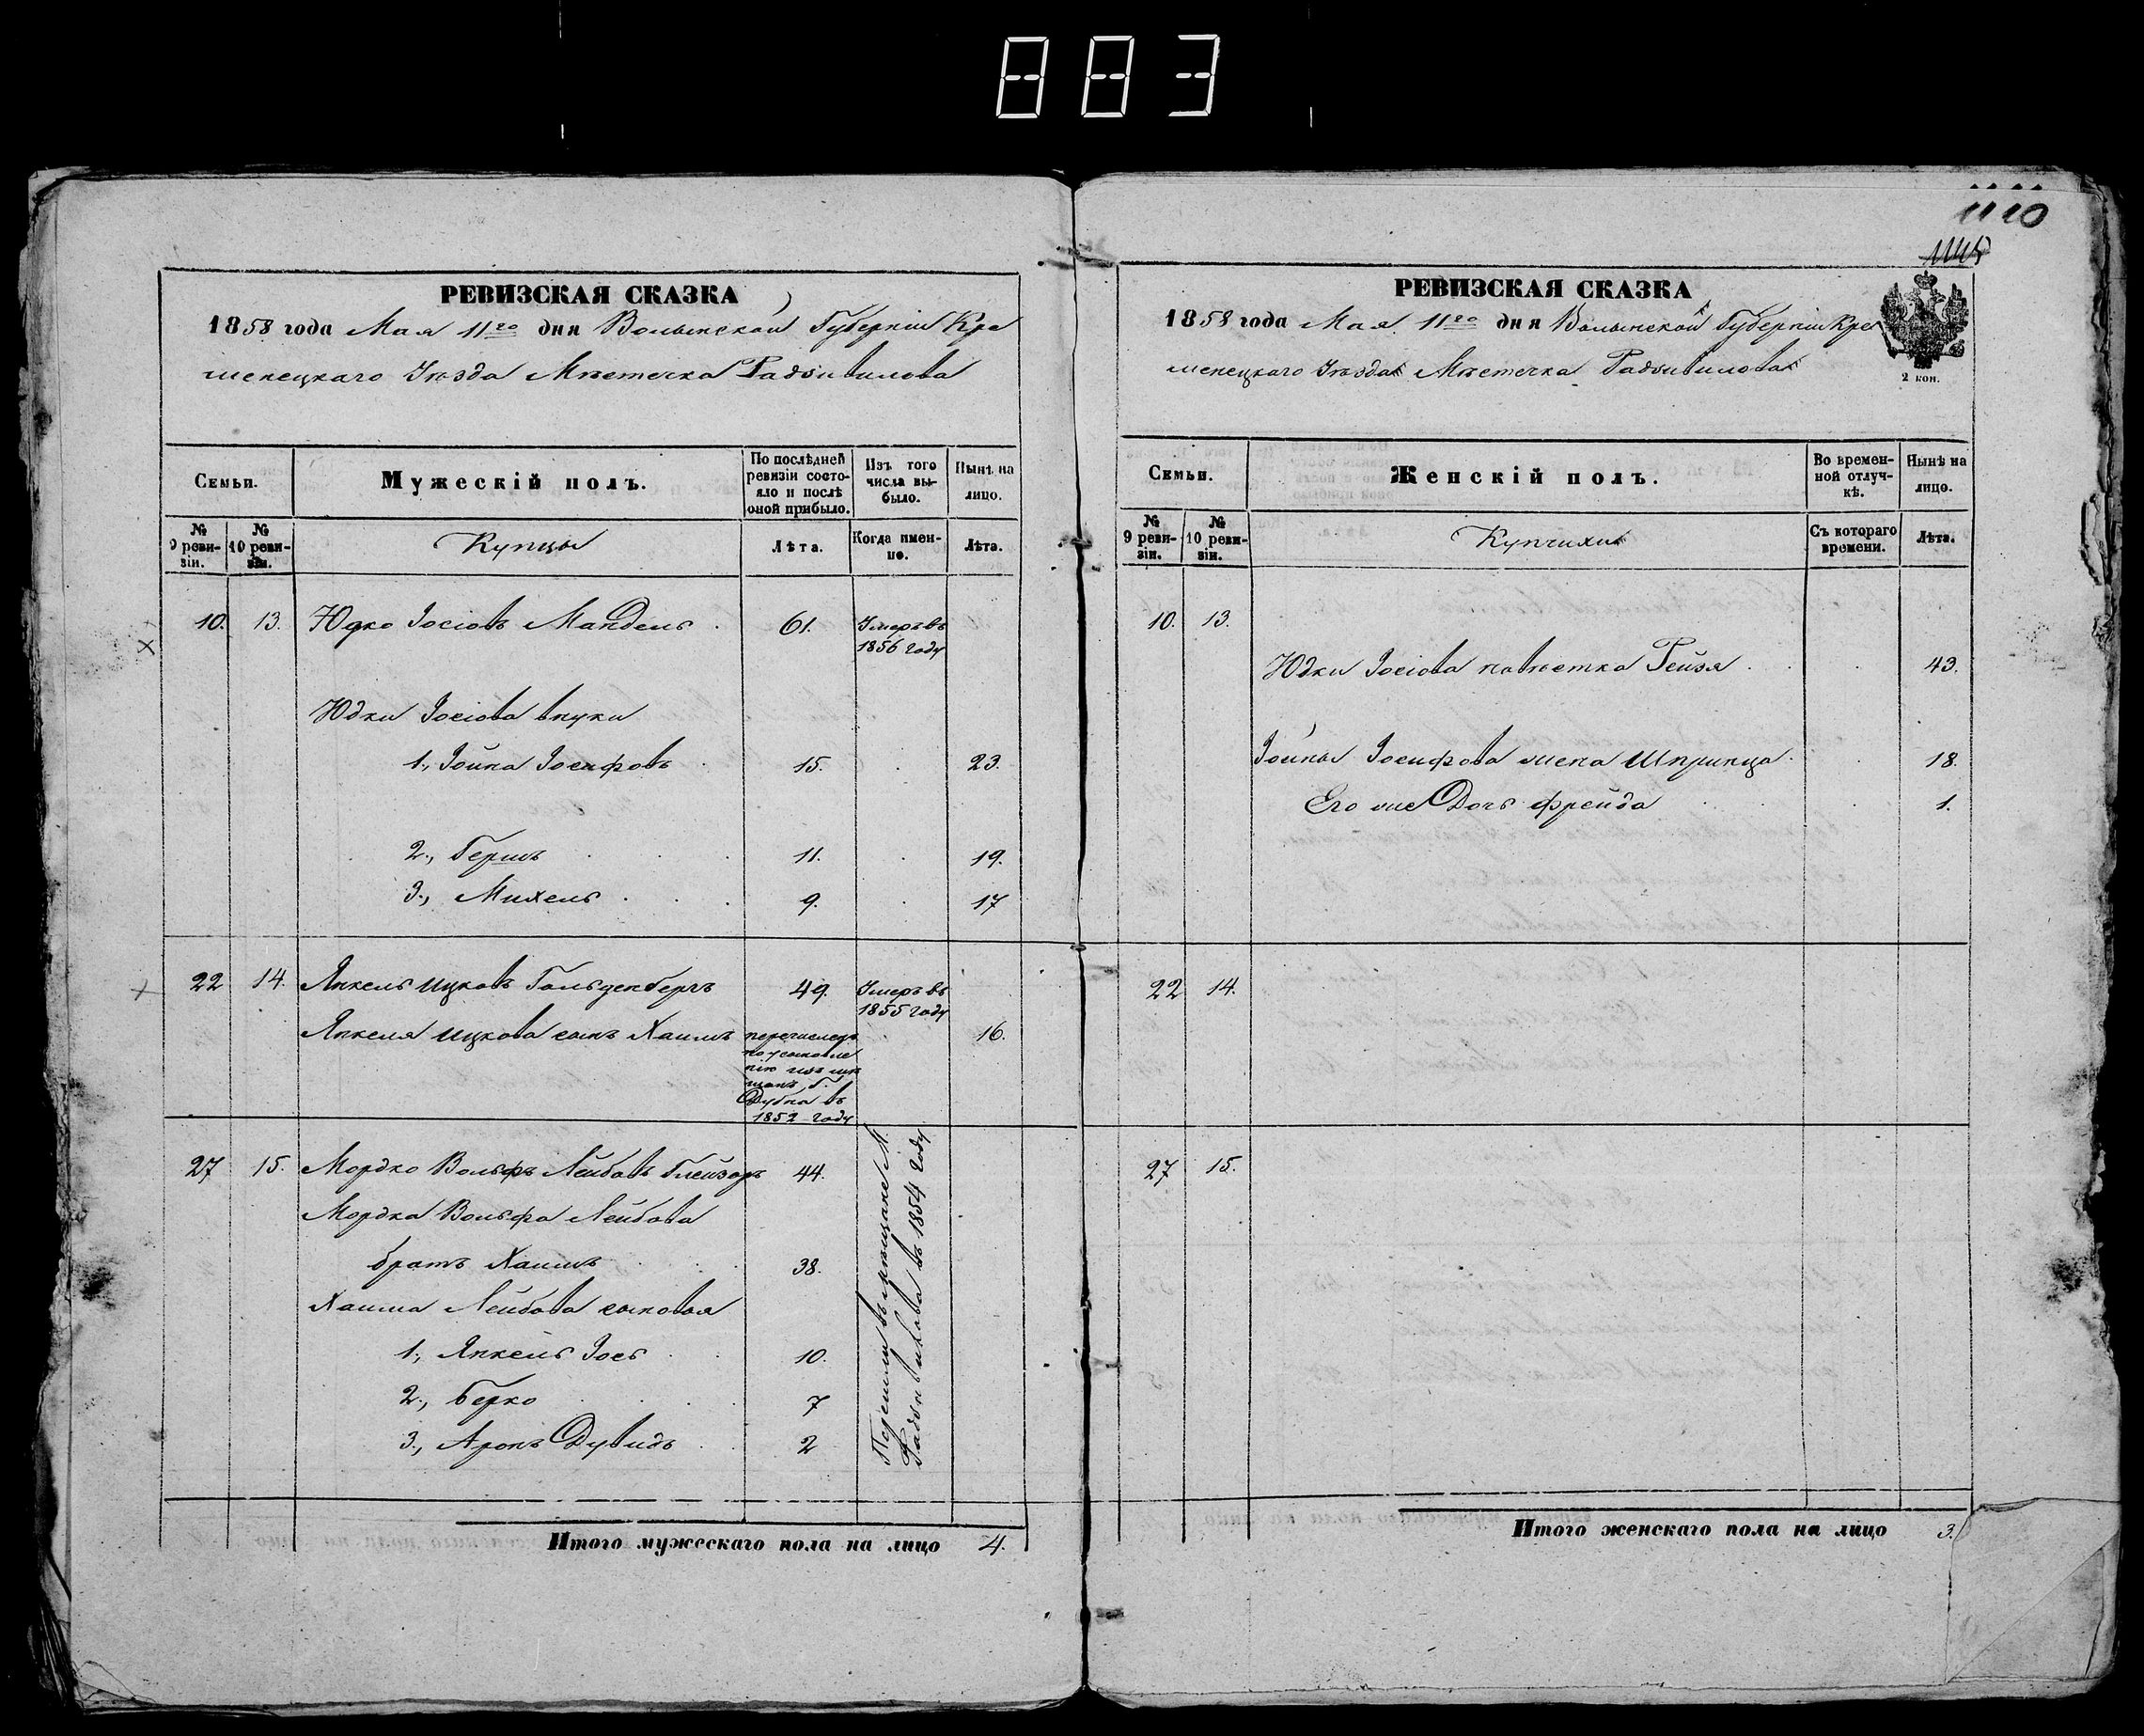 883
РЕВИЗСКАЯ СКАЗКА
1858 года Мая 11го дня Волынской Губерніи Кре
менецкаго Уѣзда Мѣстечка Радзивилова
Семьи.
Мужескій полъ.
По послѣдней ревизіи состояло и послѣ оной прибыло.
Изъ того числа выбыло.
Нынѣ на лицо.
№ 9 ревизіи.
№ 10 ревизіи.
Купцы
Лѣта.
Когда именно.
Лѣта.
10. 13. Юдко Іосіовъ Мандель. 61. Умеръ въ
1856 году
Юдки Іосіова внуки
1., Іойна Іосифовъ . 15. . 23.
2., Гершъ . . 11. . 19.
3., Михель . . . 9. . 17
22 14. Янкель Ицковъ Гольденбергъ 49. Умеръ въ
1855 году
Янкеля Ицкова сынъ Хаимъ перечисленъ 16.
по усыновле
нію изъ мѣ
щанъ г.
Дубна въ
1852 году
27 15. Мордко Вольфъ Лейбовъ Глейзеръ 44.
Мордка Вольфа Лейбова
братъ Хаимъ 38.
Хаима Лейбова сыновья
1., Янкель Іось . . 10.
2., Берко . . . 7
3., Аронъ Дувидъ . 2
въ мѣщане М.
Радзивилова въ 1854 году
Итого мужескаго пола на лицо 4.
1110
РЕВИЗСКАЯ СКАЗКА
1858 года Мая 11го дня Волынской Губерніи Кре
менецкаго Уѣзда Мѣстечка Радзивилова
2 коп.
Семьи.
Женскій полъ.
Во временной отлучкѣ.
Нынѣ на лицо.
№ 9 ревизіи.
№ 10 ревизіи.
Купчихи
Съ котораго времени.
Лѣта.
10. 13.
Юдки Іосіова невѣстка Рейзя . . 43.
Іойны Іосифова жена Шпринца . 18.
Его же Дочь Фрейда . . 1.
22 14.
27 15.
Итого женскаго пола на лицо 3.